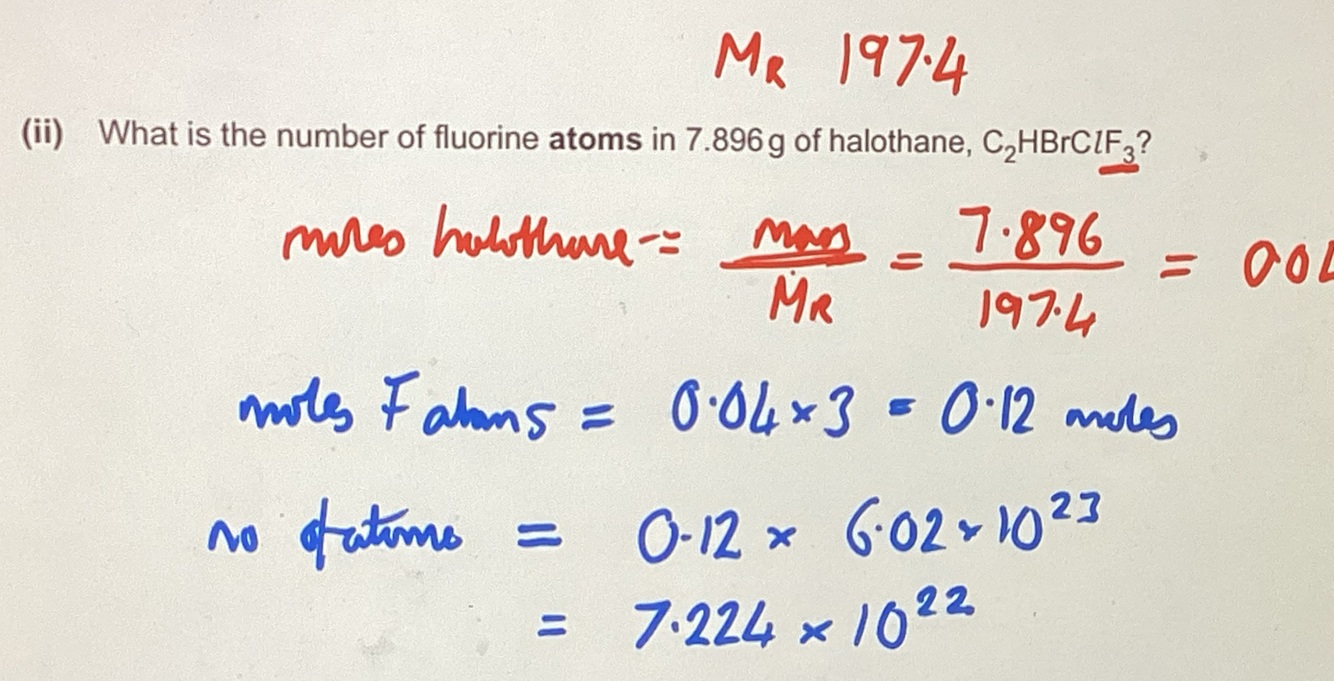 MR 197.4
(ii) What is the number of fluorine atoms in 7.896 g of halothane, C₂HBrClF₃?
moles halothane = mass/MR = 7.896/197.4 = 0.04
moles F atoms = 0.04 × 3 = 0.12 moles
no of atoms = 0.12 × 6.02 × 10²³
= 7.224 × 10²²